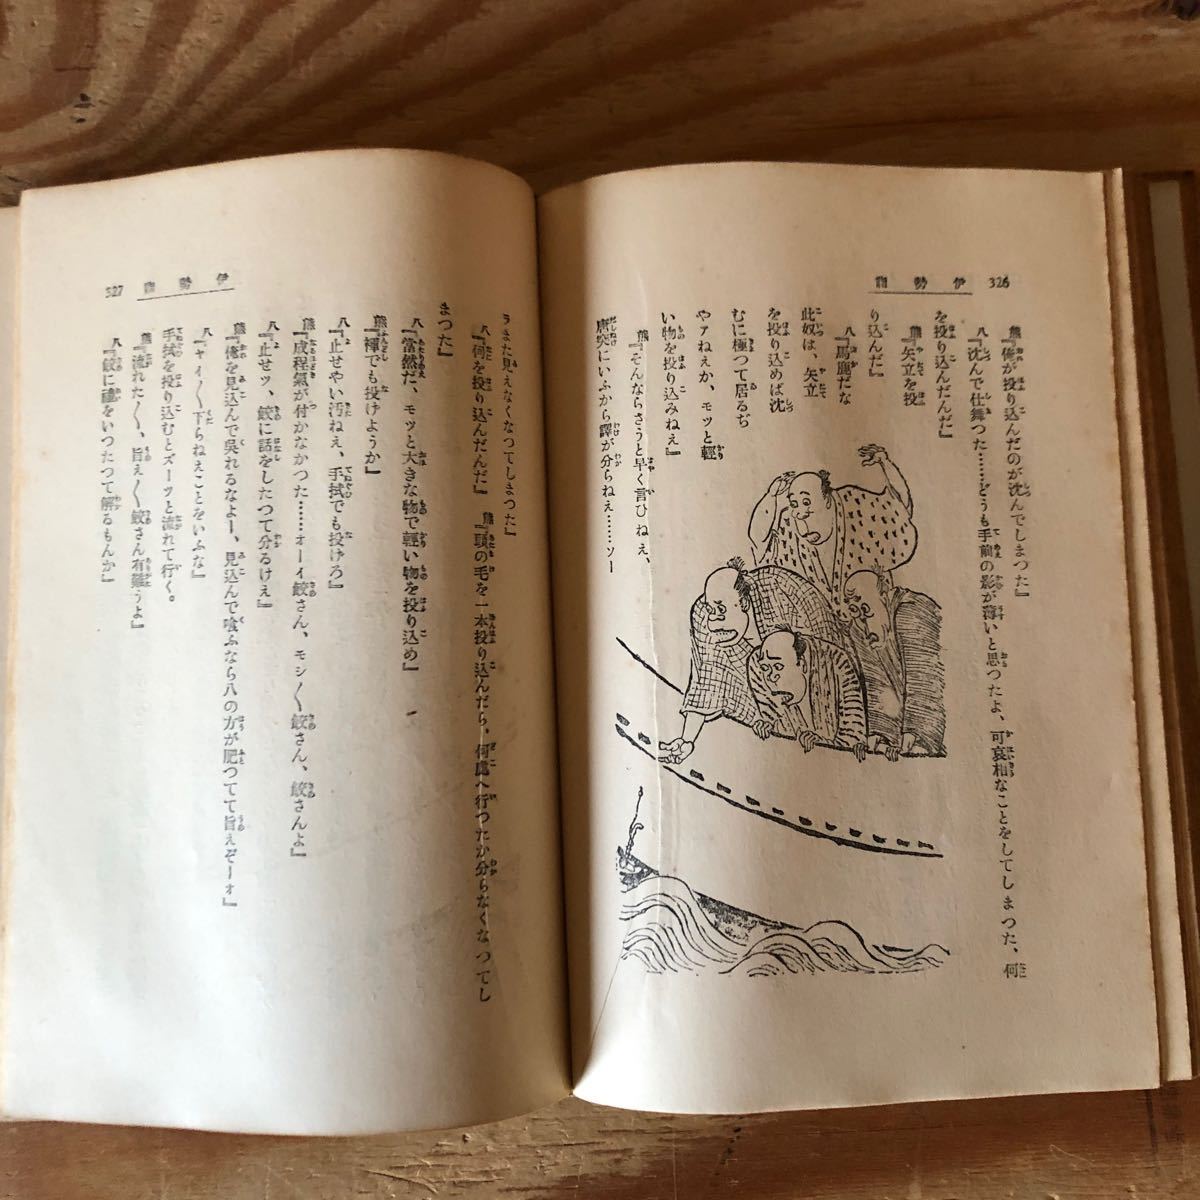 伊勢詣 326
熊『俺が投り込んだのが沈んでしまつた』
八『沈んで仕舞つた……どうも手前の影が薄いと思つたよ、可哀相なことをしてしまつた、何
を投り込んだんだ』
熊『矢立を投
り込んだ』
八『馬鹿だな
此奴は、矢立
を投り込めば沈
むに極つて居るぢ
やァねえか、モッと輕
い物を投り込みねえ』
熊『そんならさうと早く言ひねえ、
唐突にいふから譯が分らねえ……ソー
ラまた見えなくなつてしまつた』
八『何を投り込んだんだ』 熊『頭の毛を一本投り込んだら、何處へ行つたか分らなくなつてし
まつた』
八『當然だ、モッと大きな物で輕い物を投り込め』
熊『褌でも投げようか』
八『止せやい汚ねえ、手拭でも投げろ』
熊『成程氣が付かなかつた……オーイ鮫さん、モシ〱鮫さん、鮫さんよ』
八『止せッ、鮫に話をしたつて分るけえ』
熊『俺を見込んで呉れるなよー、見込んで喰ふなら八の方が肥つてて旨えぞーォ』
八『ヤイ〱下らねえことをいふな』
手拭を投り込むとズーッと流れて行く。
熊『流れた〱、旨え〱鮫さん有難うよ』
八『鮫に禮をいつたつて解るもんか』
伊勢詣 327